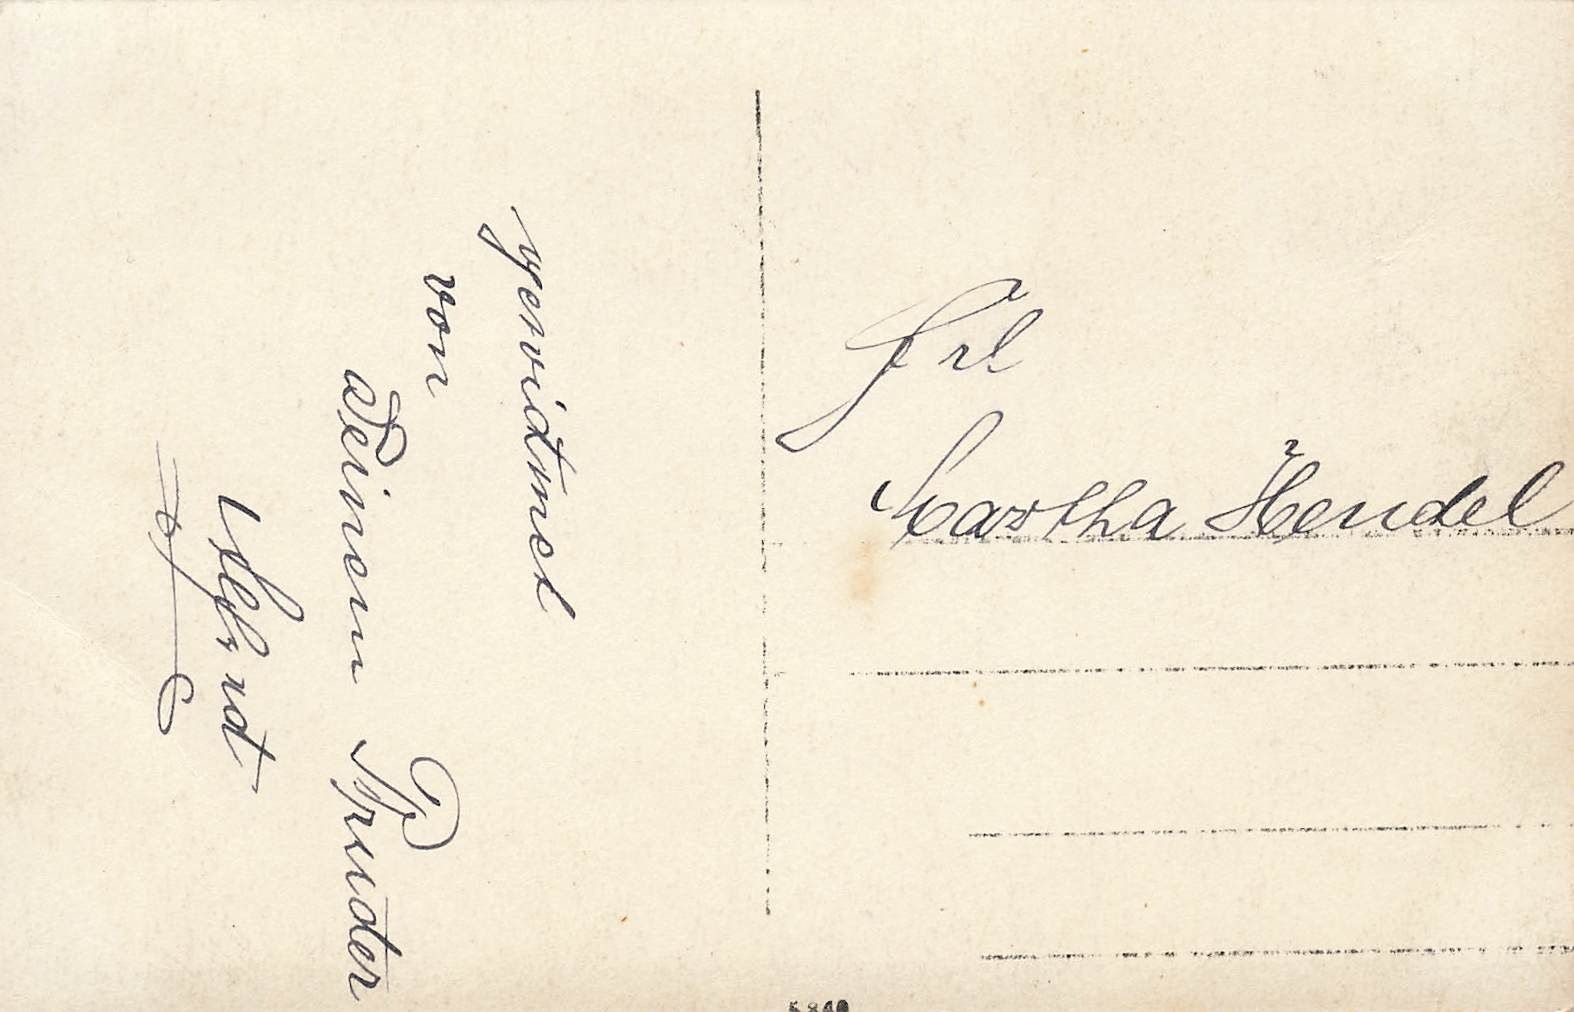 gewidmet
von
Deinem Bruder
Alfred
Frl
Martha Hendel